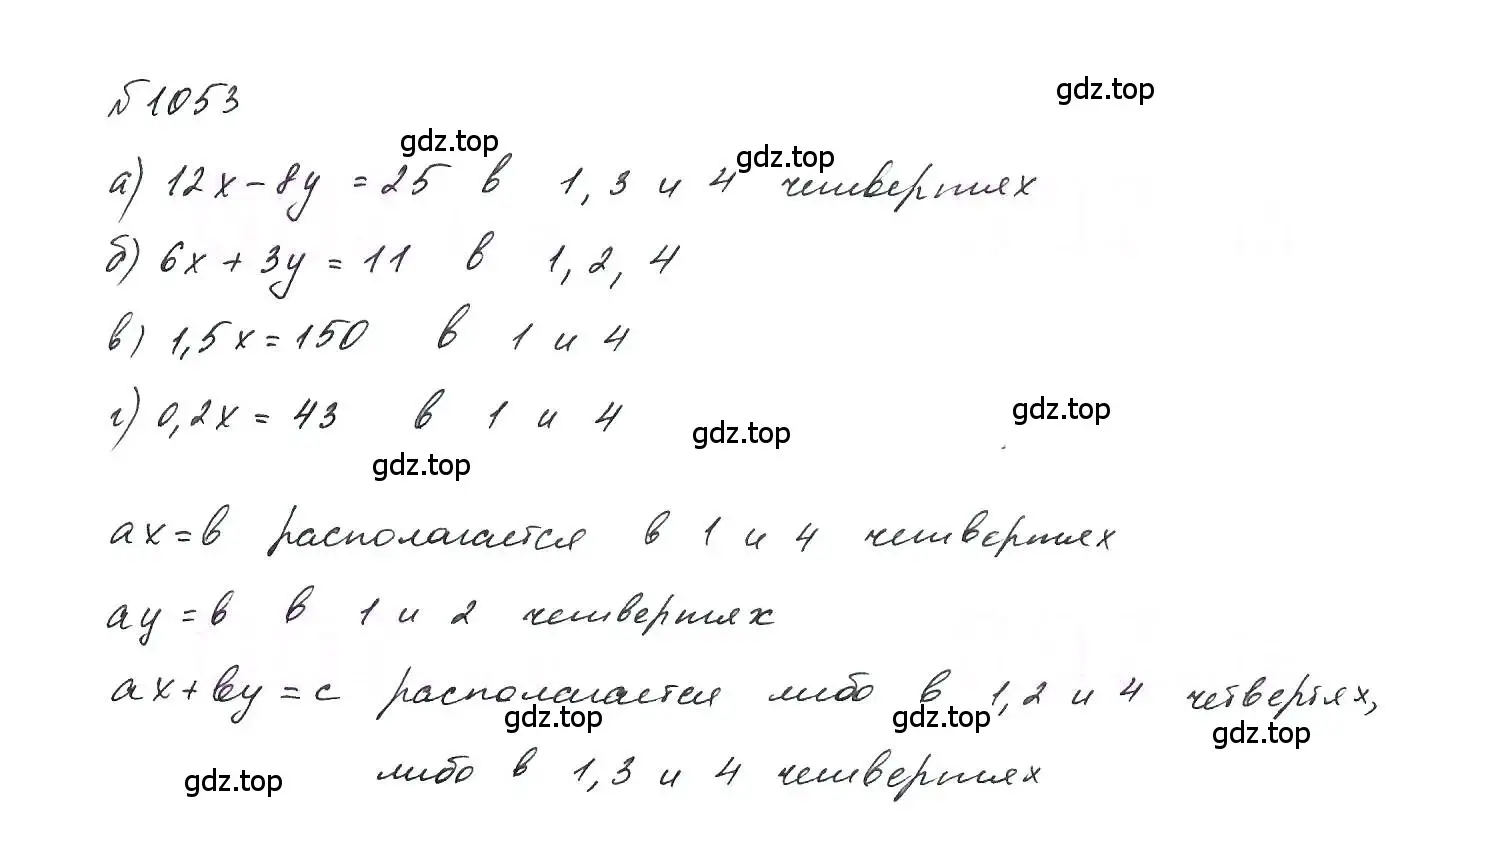 №1053
gdz.top
gdz.top
gdz.top
а) 12x - 8y = 25 в 1, 3 и 4 четвертях
б) 6x + 3y = 11 в 1, 2, 4
в) 1,5x = 150 в 1 и 4
г) 0,2x = 43 в 1 и 4
gdz.top
gdz.top
gdz.top
ax = в располагается в 1 и 4 четвертях
ay = в в 1 и 2 четвертях
ax + вy = c располагается либо в 1, 2 и 4 четвертях,
gdz.top
gdz.top
gdz.top
либо в 1, 3 и 4 четвертях
gdz.top